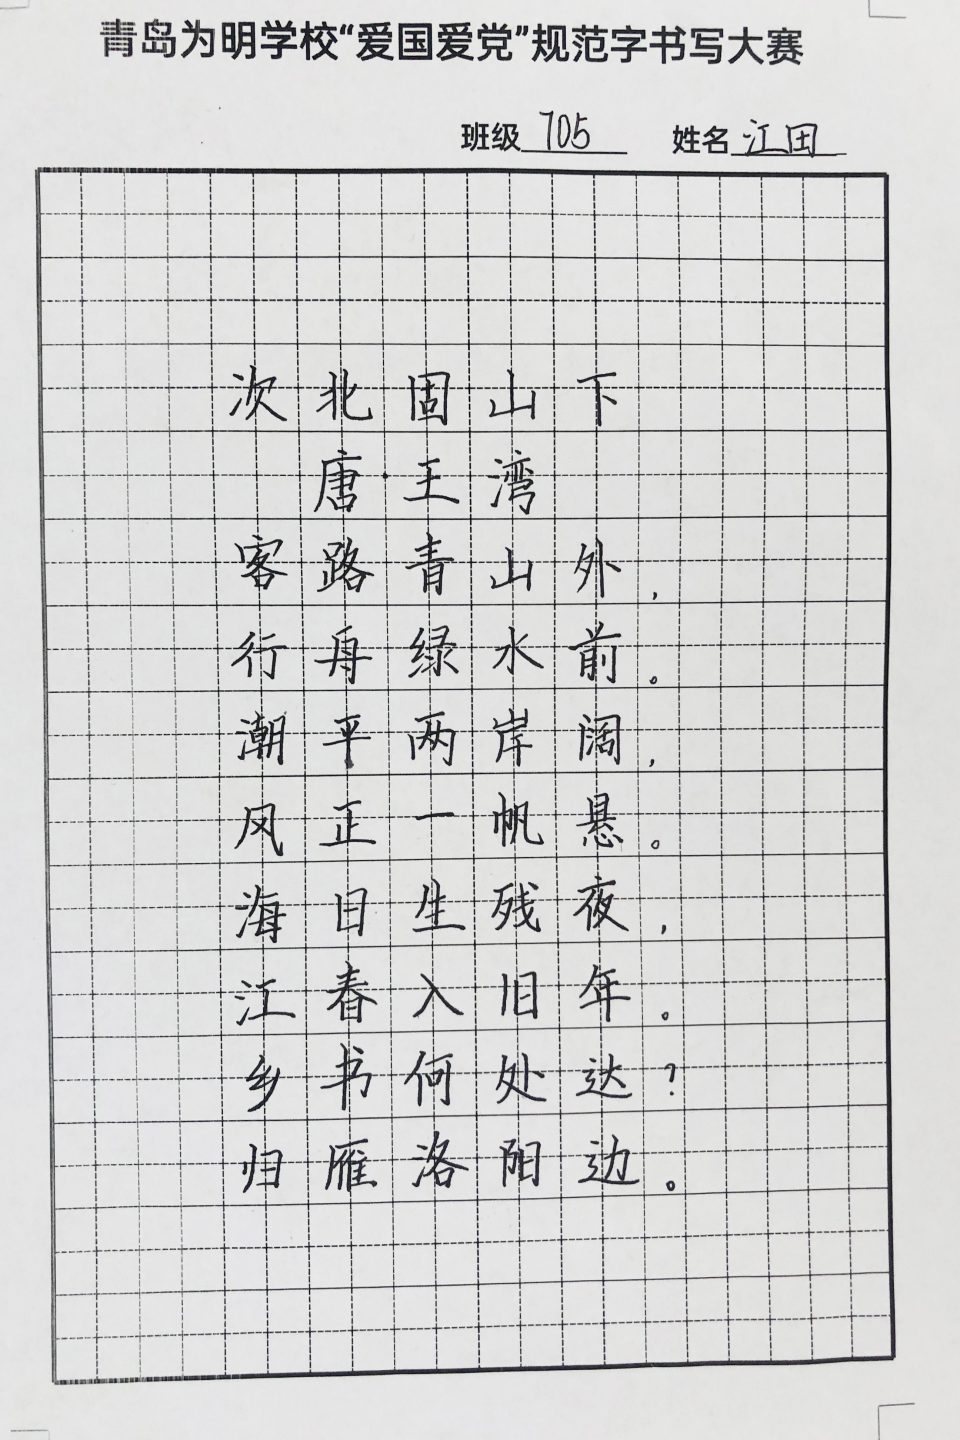 青岛为明学校“爱国爱党”规范字书写大赛
班级 705 姓名 江田
次北固山下
唐·王湾
客路青山外，
行舟绿水前。
潮平两岸阔，
风正一帆悬。
海日生残夜，
江春入旧年。
乡书何处达？
归雁洛阳边。